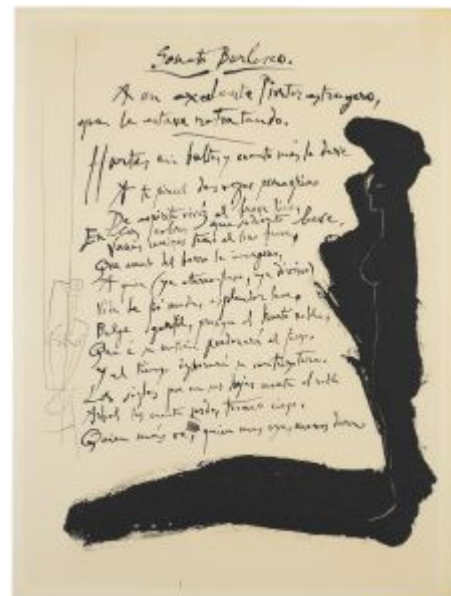 Soneto Burlesco.
A un excelente Pintor estrangero,
que le estava retratando.
Hurtas mi bulto, y cuanto más le deve
A tu pincel dos vezes peregrino
De espiritu vivaz el breve lino
En las colores que sediento beve,
Vanas cenizas temo al lino breve,
Que emulo del barro le imagino,
A quien (ya etereo fuese, ya divino)
Vida le fió muda esplendor leve.
Belga gentil, prosigue al hurto noble,
Que a su materia perdonará el fuego,
Y el tiempo ignorará su contextura.
Los siglos que en sus hojas cuenta el roble
Arbol los cuenta sordo, tronco ciego,
Quien más ve, quien mas oye, menos dura